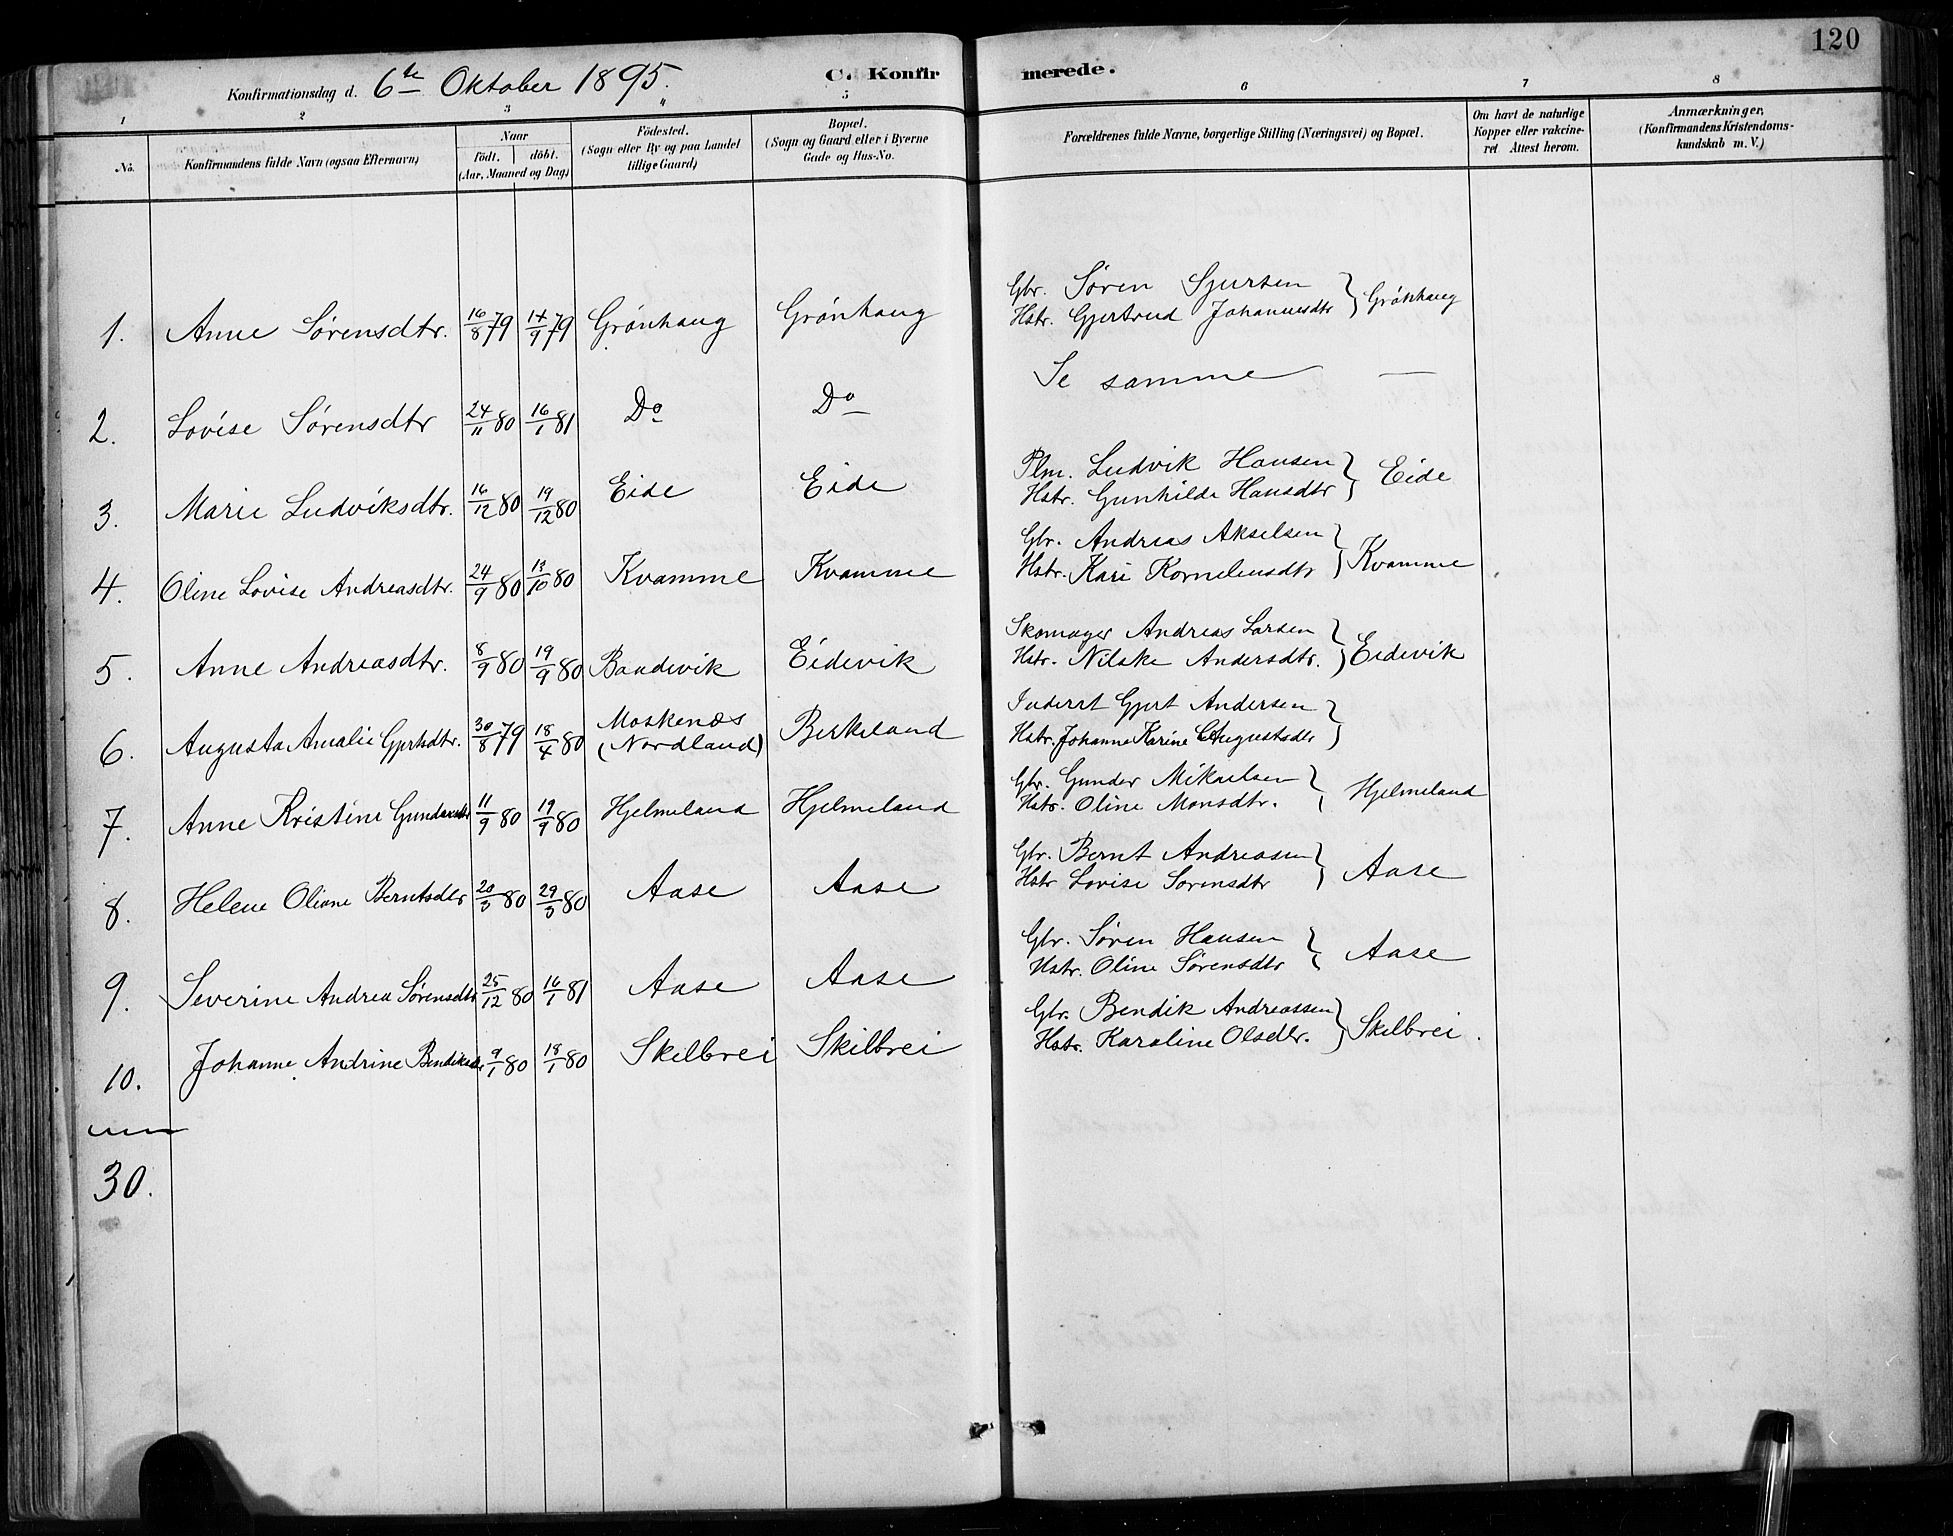 120
Konfirmationsdag d. 6te Oktober 1895.
C. Konfirmerede.
1 2 3 4 5 6 7 8
No.
Konfirmandens fulde Navn (ogsaa Efternavn)
Naar
födt. döbt.
(Aar, Maaned og Dag)
Födested.
(Sogn eller By og paa Landet
tillige Gaard)
Bopæl.
(Sogn og Gaard eller i Byerne
Gade og Hus-No.
Forældrenes fulde Navne, borgerlige Stilling (Næringsvei) og Bopæl.
Om havt de naturlige
Kopper eller vakcine-
ret Attest herom.
Anmærkninger,
(Konfirmandens Kristendoms-
kundskab m. V.)
1. Anne Sørensdtr. 16/8 79 14/9 79 Grönhaug Grönhaug Gbr. Søren Sjursen
Hstr. Gjertrud Johannesdtr } Grönhaug
2. Lovise Sørensdtr 24/11 80 16/1 81 Do Do Se samme —
3. Marie Ludviksdtr. 16/12 80 19/12 80 Eide Eide Plm. Ludvik Hansen
Hstr. Gunhilde Hansdtr } Eide
4. Oline Lovise Andreasdtr. 24/9 80 13/10 80 Kvamme Kvamme Gbr. Andreas Akselsen
Hstr. Kari Korneliusdtr } Kvamme
5. Anne Andreasdtr. 8/9 80 19/9 80 Baadevik Eidevik Skomager Andreas Larsen
Hstr. Nilske Andersdtr. } Eidevik
6. Augusta Amalie Gjertsdtr. 30/8 79 18/4 80 Moskenæs
(Nordland) Birkeland Inderst Gjert Andersen
Hstr. Johanne Karine Augustsdtr }
7. Anne Kristine Gundersdtr 11/9 80 19/9 80 Hjelmeland Hjelmeland Gbr. Gunder Mikaelsen
Hstr. Oline Monsdtr. } Hjelmeland
8. Helene Oliane Berntsdtr 20/3 80 29/3 80 Aase Aase Gbr. Bernt Andreasen
Hstr Lovise Sorensdtr } Aase
9. Severine Andrea Sørensdtr 25/12 80 16/1 81 Aase Aase Gbr. Søren Hansen
Hstr. Oline Sørensdtr } Aase
10. Johanne Andrine Bendiksdtr 9/1 80 18/1 80 Skilbrei Skilbrei Gbr. Bendik Andreassen
Hstr. Karoline Olsdtr. } Skilbrei.
30.